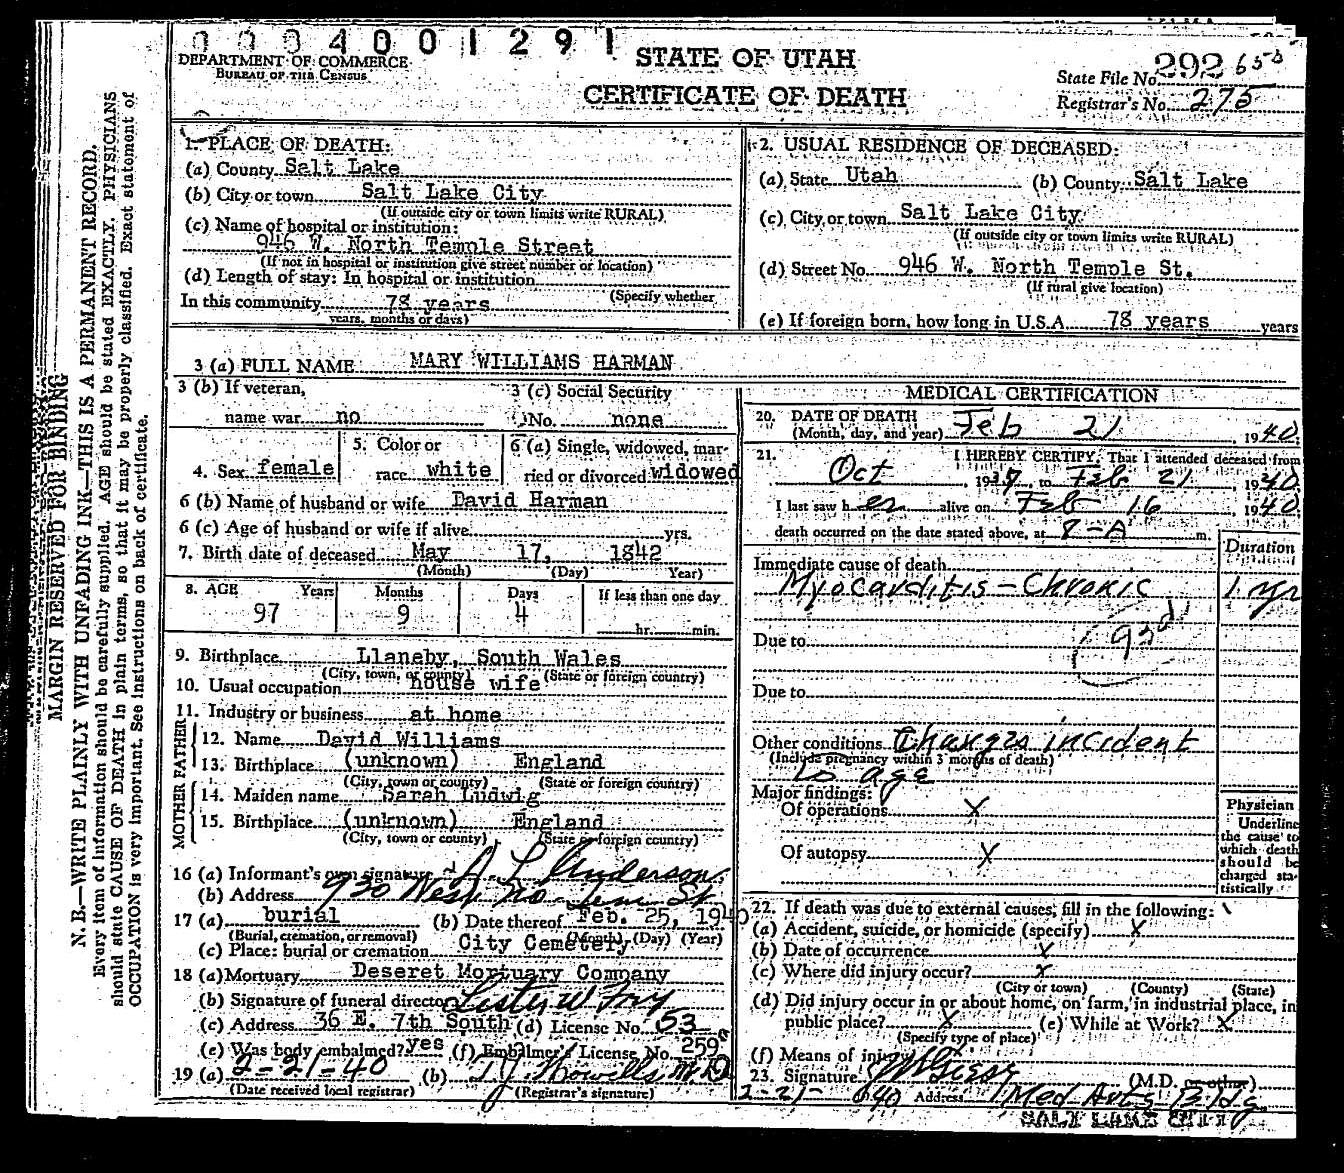 0004001291
DEPARTMENT OF COMMERCE
BUREAU OF THE CENSUS
STATE OF UTAH
CERTIFICATE OF DEATH
State File No. 292 65
Registrar's No. 275
MARGIN RESERVED FOR BINDING
N. B.—WRITE PLAINLY WITH UNFADING INK—THIS IS A PERMANENT RECORD.
Every item of information should be carefully supplied. AGE should be stated EXACTLY. PHYSICIANS
should state CAUSE OF DEATH in plain terms, so that it may be properly classified. Exact statement of
OCCUPATION is very important. See instructions on back of certificate.
1. PLACE OF DEATH:
(a) County Salt Lake
(b) City or town Salt Lake City
(If outside city or town limits write RURAL)
(c) Name of hospital or institution:
946 W. North Temple Street
(If not in hospital or institution give street number or location)
(d) Length of stay: In hospital or institution
(Specify whether
In this community 78 years
years, months or days)
2. USUAL RESIDENCE OF DECEASED:
(a) State Utah (b) County Salt Lake
(c) City or town Salt Lake City
(If outside city or town limits write RURAL)
(d) Street No. 946 W. North Temple St.
(If rural give location)
(e) If foreign born, how long in U.S.A. 78 years years
3 (a) FULL NAME MARY WILLIAMS HARMAN
3 (b) If veteran,
name war no
3 (c) Social Security
No. none
4. Sex female
5. Color or
race white
6 (a) Single, widowed, mar-
ried or divorced widowed
6 (b) Name of husband or wife David Harman
6 (c) Age of husband or wife if alive yrs.
7. Birth date of deceased May 17, 1842
(Month) (Day) Year)
8. AGE Years Months Days If less than one day
97 9 4 hr. min.
9. Birthplace Llaneby, South Wales
(City, town, or county) (State or foreign country)
10. Usual occupation house wife
11. Industry or business at home
FATHER
12. Name David Williams
13. Birthplace (unknown) England
(City, town or county) (State or foreign country)
MOTHER
14. Maiden name Sarah Ludwig
15. Birthplace (unknown) England
(City, town or county) (State or foreign country)
16 (a) Informant's own signature J. L. Anderson
(b) Address 930 West No. Tem St
17 (a) burial (b) Date thereof Feb. 25, 1940
(Burial, cremation, or removal) (Month) (Day) (Year)
(c) Place: burial or cremation City Cemetery
18 (a) Mortuary Deseret Mortuary Company
(b) Signature of funeral director Lester W Fry
(c) Address 36 E. 7th South (d) License No. 53
(e) Was body embalmed? yes (f) Embalmer's License No. 259
19 (a) 2-21-40 (b) T J Howells M.D
(Date received local registrar) (Registrar's signature)
MEDICAL CERTIFICATION
20. DATE OF DEATH
(Month, day, and year) Feb 21, 1940
21. I HEREBY CERTIFY, That I attended deceased from
Oct, 1937, to Feb 21 1940
I last saw her alive on Feb 16 1940
death occurred on the date stated above, at 8-A m.
Duration
Immediate cause of death
Myocarditis - Chronic 1 yr
93d
Due to
Due to
Other conditions Changes incident
(Include pregnancy within 3 months of death)
to age
Major findings:
Of operations X
Of autopsy X
Physician
Underline
the cause to
which death
should be
charged sta-
tistically
22. If death was due to external causes, fill in the following:
(a) Accident, suicide, or homicide (specify) X
(b) Date of occurrence X
(c) Where did injury occur? X
(City or town) (County) (State)
(d) Did injury occur in or about home, on farm, in industrial place, in
public place? X (e) While at Work? X
(Specify type of place)
(f) Means of injury
23. Signature (M.D. or other)
2-21-1940 Address Med Arts Bldg
SALT LAKE CITY